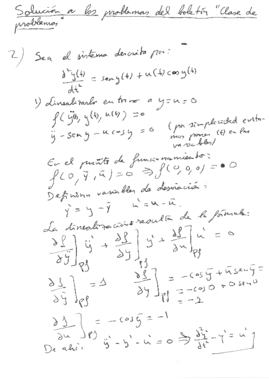 Solución a los problemas del boletín "Clase de
problemas"
2) Sea el sistema descrito por:
d²y(t)/dt² = sen y(t) + u(t) cos y(t)
1) Linealizarlo en torno a y=u=0
f(ÿ(t), y(t), u(t)) = 0
ÿ - sen y - u cos y = 0 (por simplicidad evita-
mos poner (t) en las
variables)
En el punto de funcionamiento:
f(0, ȳ, ū) = 0 ⇒ f(0,0,0) = 0
Definimos variables de desviación:
y' = y - ȳ u' = u - ū
La linealización resulta de la fórmula:
∂f/∂ÿ]pf ÿ' + ∂f/∂y]pf y' + ∂f/∂u]pf u' = 0
∂f/∂ÿ]pf = 1 ∂f/∂y]pf = -cos ȳ + ū sen ȳ =
= -cos 0 + 0 sen 0
= -1
∂f/∂u]pf = -cos ȳ = -1
De ahí: ÿ' - y' - u' = 0 ⇒ d²y'/dt² - y' = u'